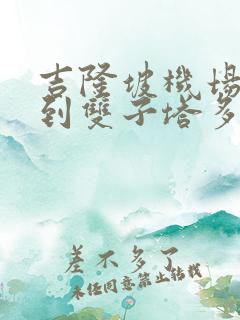 吉隆坡機場
到雙子塔多
差不多了
未经同意禁止转载